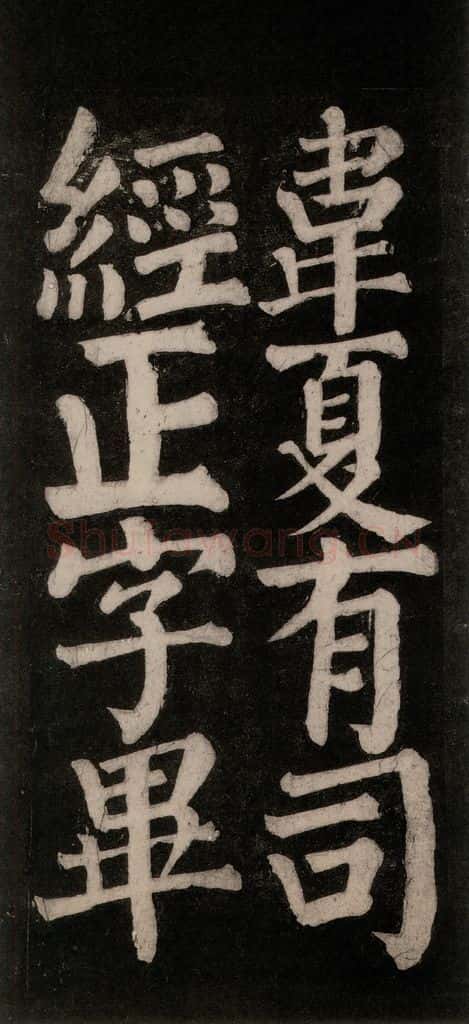 韋夏有司
經正字畢
Shufawang.CN